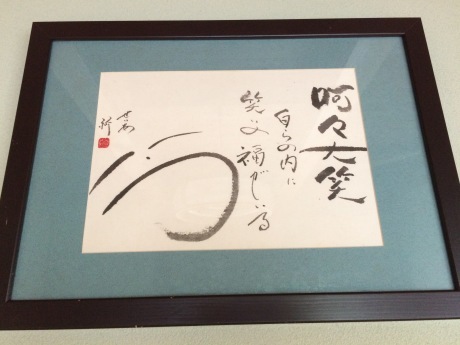 呵々大笑
自らの内に
笑う福がいる